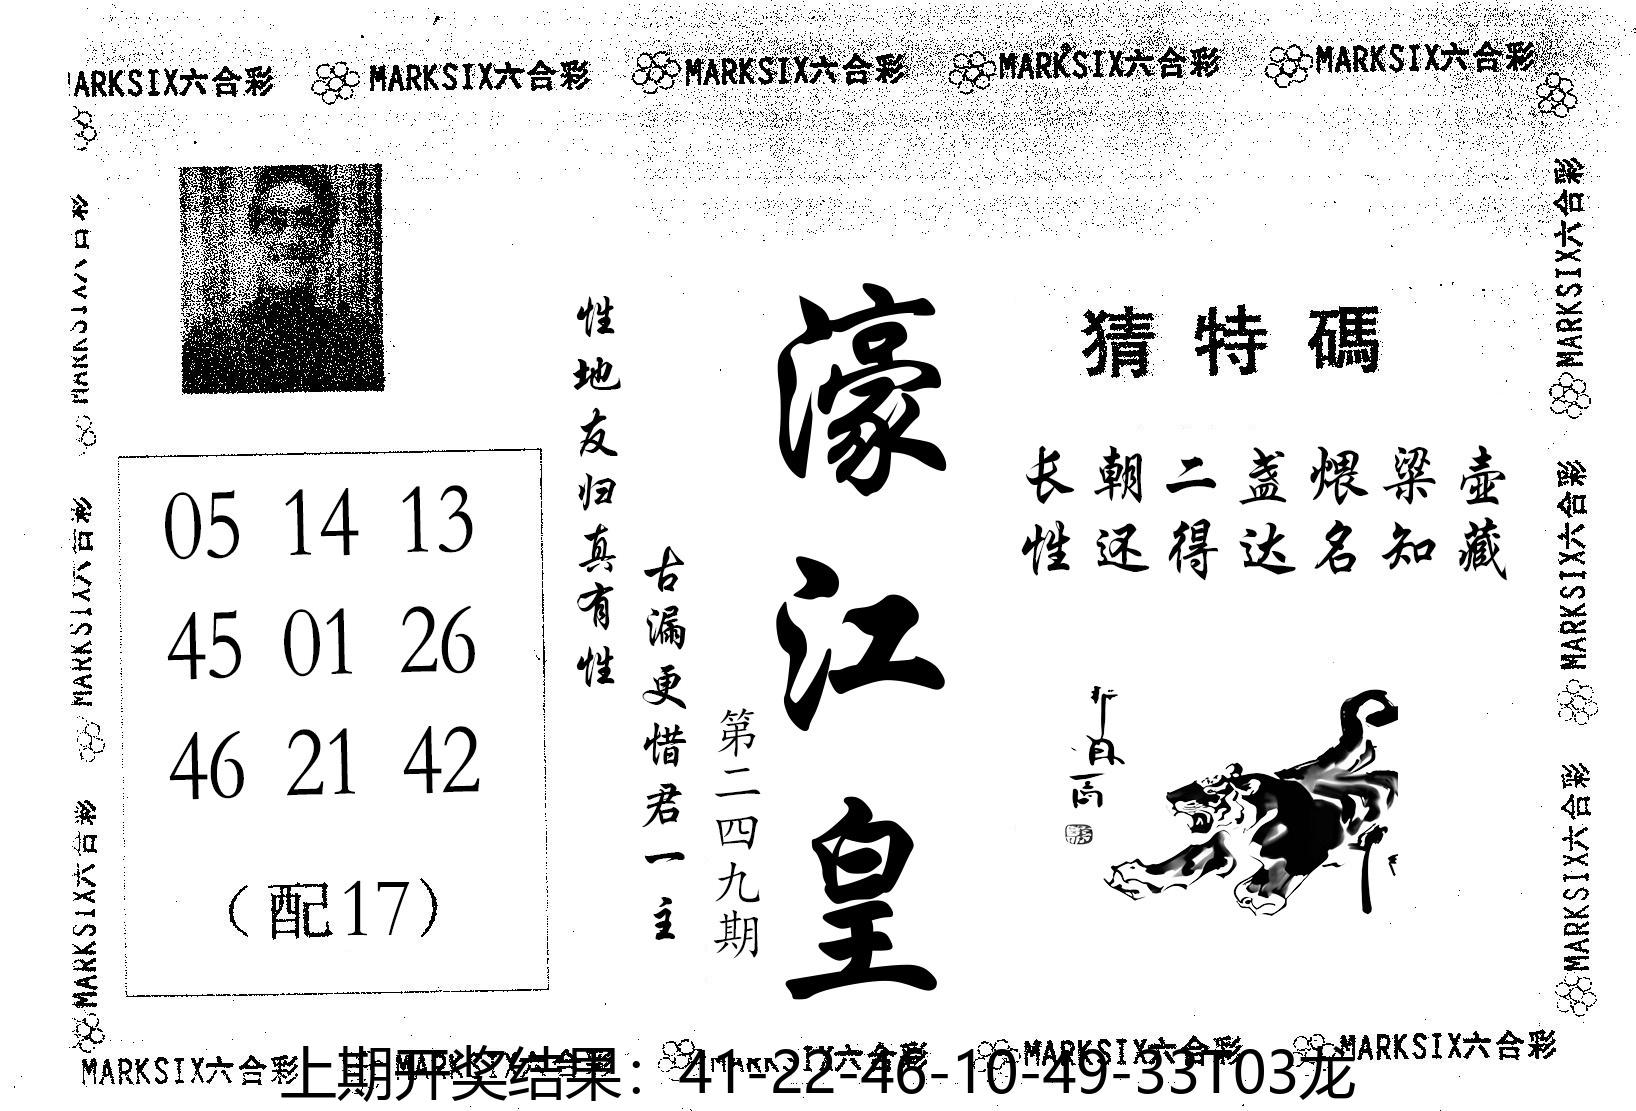 MARKSIX六合彩 MARKSIX六合彩 MARKSIX六合彩 MARKSIX六合彩 MARKSIX六合彩
猜特碼
长朝二盏煨梁壶
性还得达名知藏
濠江皇
第二四九期
古漏更惜君一主
性地友归真有性
05 14 13
45 01 26
46 21 42
（配17）
MARKSIX六合彩
MARKSIX六合彩
MARKSIX六合彩
MARKSIX六合彩
MARKSIX六合彩
MARKSIX六合彩
MARKSIX六合彩 MARKSIX六合彩 MARKSIX六合彩 MARKSIX六合彩 MARKSIX六合彩
上期开奖结果：41-22-46-10-49-33T03龙